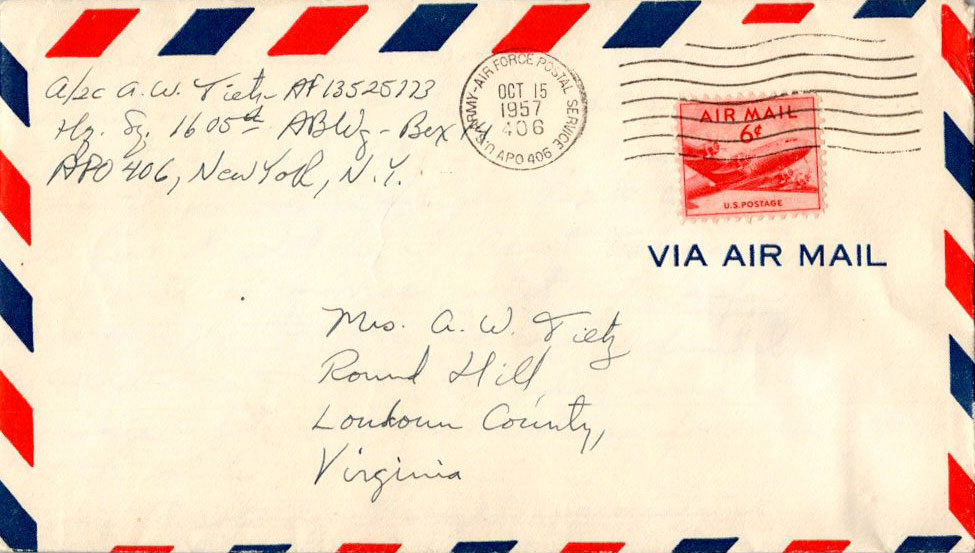 A/2c A. W. Tietz AF13525773
Hq. Sq. 1605th ABWg - Box
APO 406, New York, N.Y.
U.S. ARMY-AIR FORCE POSTAL SERVICE
OCT 15
1957
406
APO 406
AIR MAIL
6¢
U.S. POSTAGE
VIA AIR MAIL
Mrs. A. W. Tietz
Round Hill
Loudoun County,
Virginia